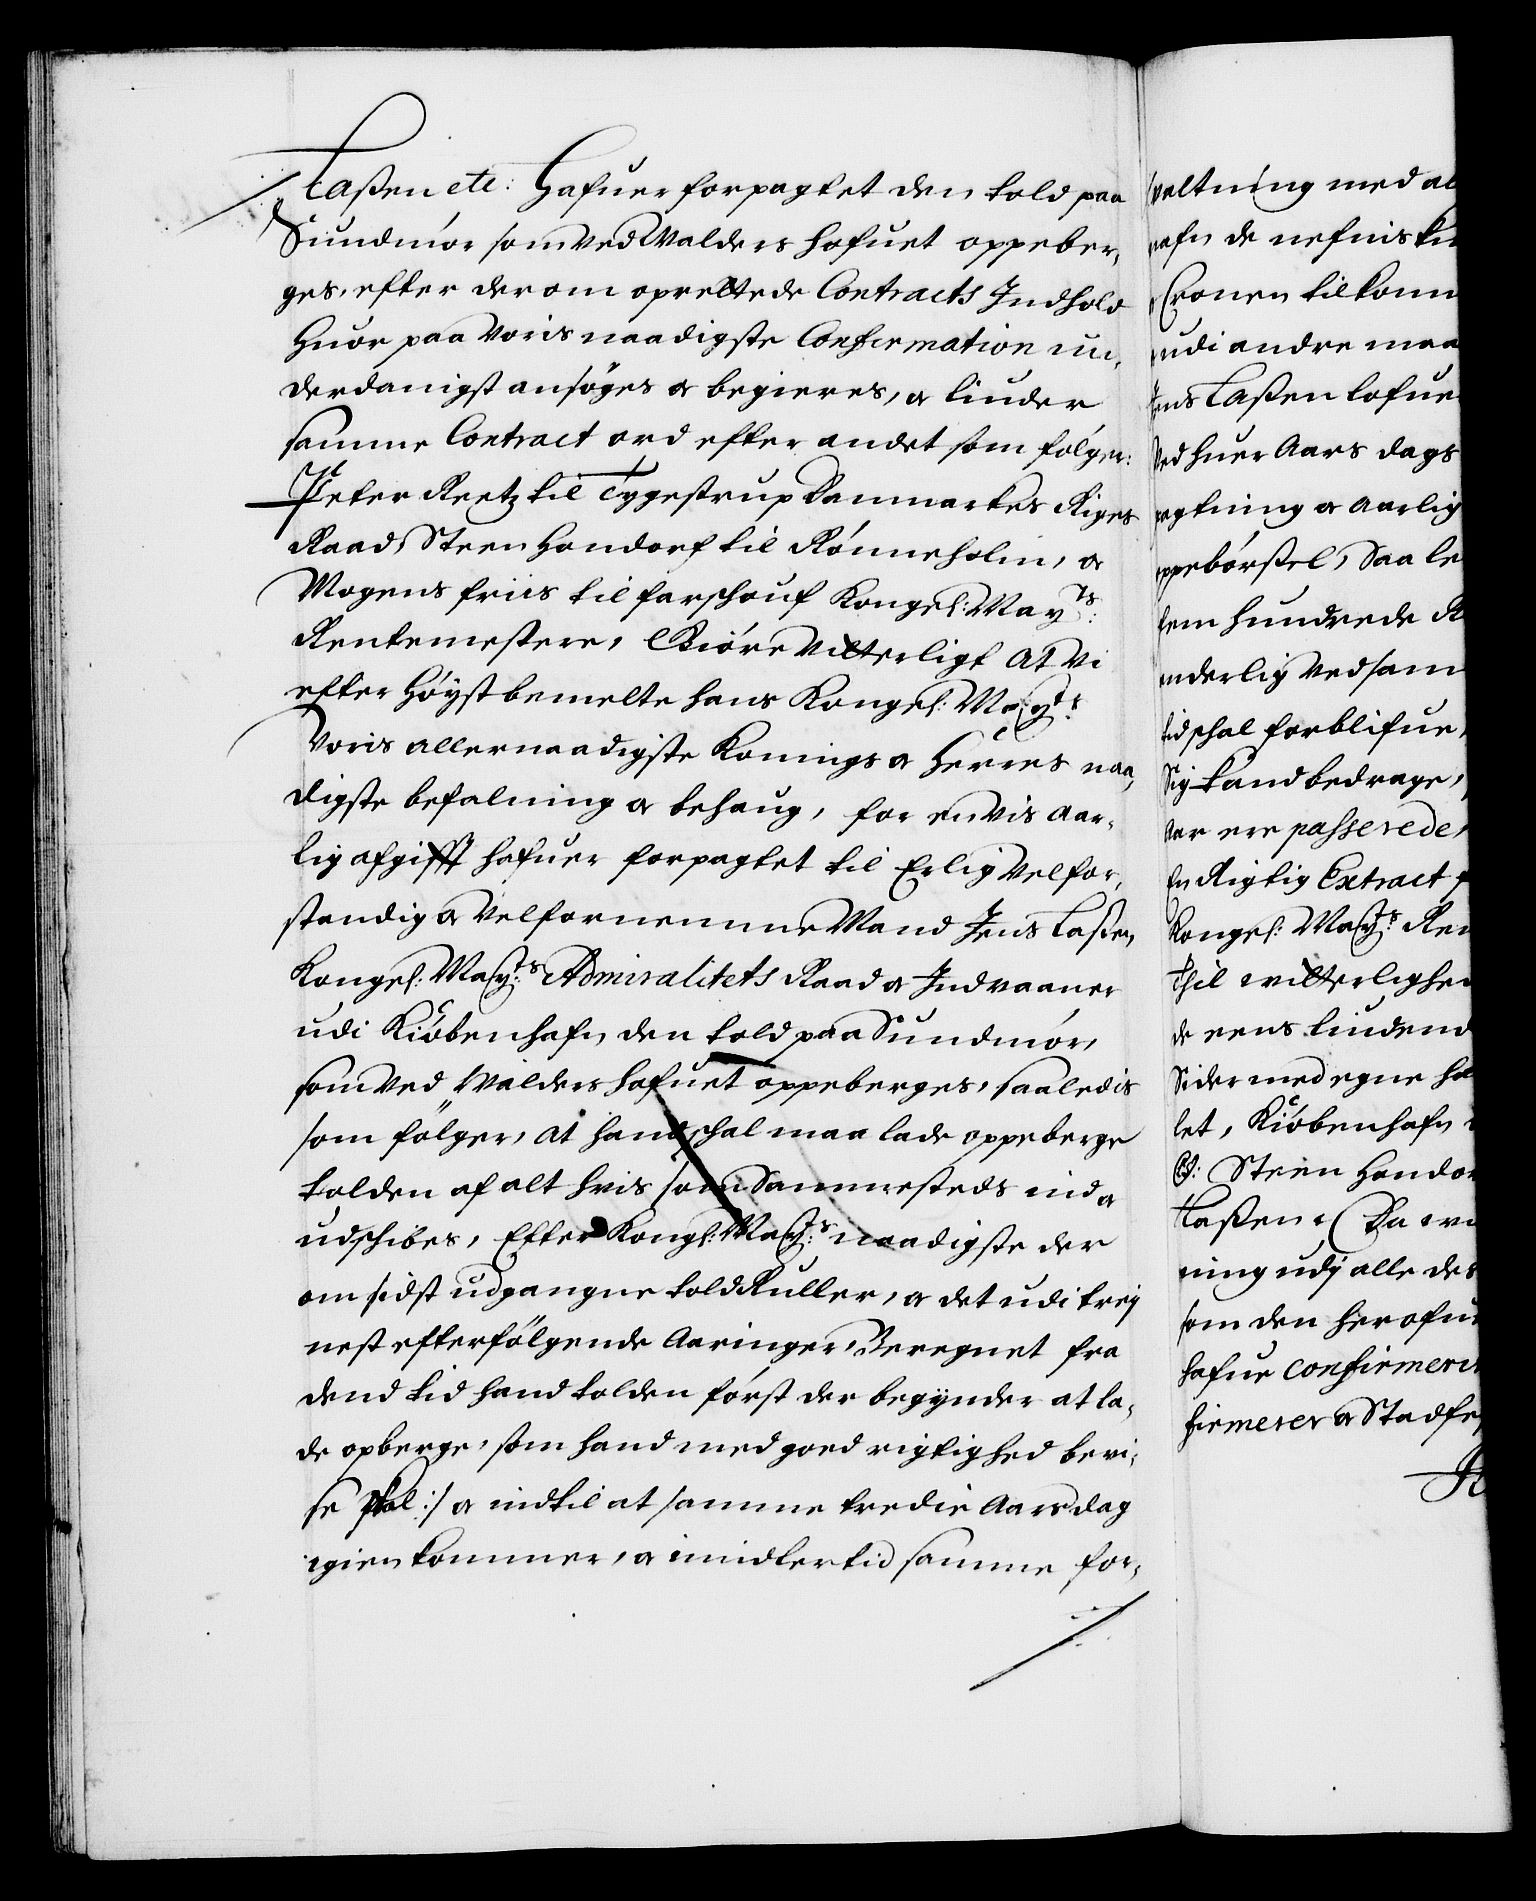 Laßen etc: Hafuer forpagtet den told paa
Sundmör som ved Walders hafuet oppeber,
ges, efter derom oprettede Contracts Indhold
Huor paa Voris naadigste Confirmation un,
derdanigst ansöges & begieres, & liuder
samme Contract ord efter andet som fölger:
Peter Reetz til Tygestrup Danmarkes Riges
Raad, Steen Hondorf til Rönneholm, &
Mogens friis til farschouf Kongel: Mayts:
Rentemestere, Giöre Vitterligt At Vi
efter Höystbemelte hans Kongel: Mayts:
Voris allernaadigste Konings & Herres naa,
digste befalning & behaug, for en vis Aar,
lig afgifft hafuer forpagtet til Erlig Velfor,
standig & Velfornemme Mand Jens Laßen,
Kongel: Mayts: Admiralitets Raad & Indvaaner
udi Kiöbenhafn, den told paa Sundmör,
som ved Walders hafuet oppeberges, saaledis
som fölger, At hand schal maa lade oppeberge
tolden af alt hvis som Sammesteds ind &
udschibes, Efter Kongl: Mayts: naadigste der
om sidst udgangne told Ruller, & det udi trej
nest efterfölgende Aaringer, Beregnet fra
dend tid hand tolden först der begynder at la,
de opberge, som hand med goed rigtighed bevi,
se skal :/ & indtil at samme tredie Aars dag
igien kommer, & imidlertid samme for,
valtning med al
nafn de nefnis ku
Cronen tilkom
udi andre maa
Jens Laßen lofue
ved huer Aars dags
regtning & aarlig
oppebörßel, Saa le
fem hundrede R
underlig ved sam
tid schal forblifue,
Sig kand bedrage,
Aar ere passerede,
En Rigtig Extract
Kongel: Mayts: Ren
Thil witterlighe
de eens liudend
Sider med egne h
let, Kiöbenhafn
Steen Hondor
Laßen Da wi
ning udj alle des
som den herofu
hafue confirmeri
firmerer & Stadfe